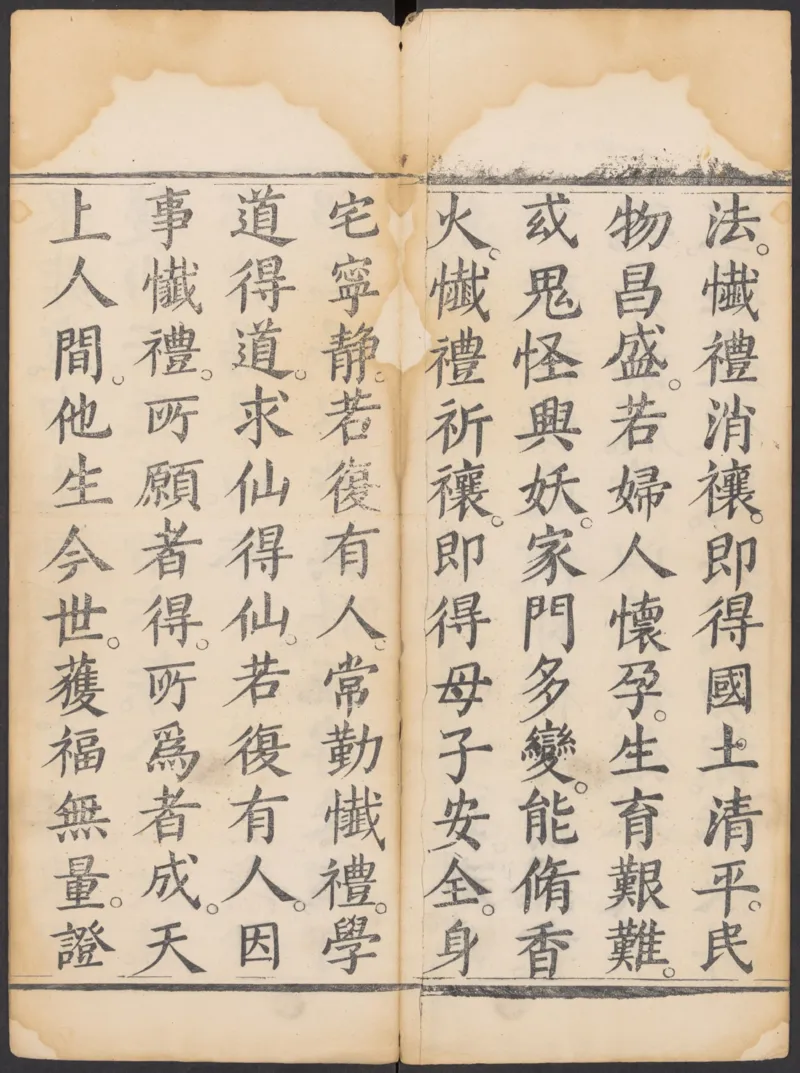 法。懴禮消禳。即得國土清平。民
物昌盛。若婦人懷孕。生育艱難。
或鬼怪興妖。家門多變。能脩香
火。懴禮祈禳。即得母子安全。身
宅寧静。若復有人。常勤懴禮。學
道得道。求仙得仙。若復有人。因
事懴禮。所願者得。所爲者成。天
上人間。他生今世。獲福無量。證